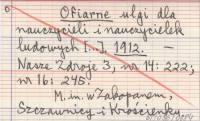 Ofiarne ulgi dla
nauczycieli i nauczycielek
ludowych [...], 1912. —
Nasze Zdroje 3, nr 14: 222;
nr 16: 245.
M. in. w Zakopanem,
Szczawnicy i Krościenku.